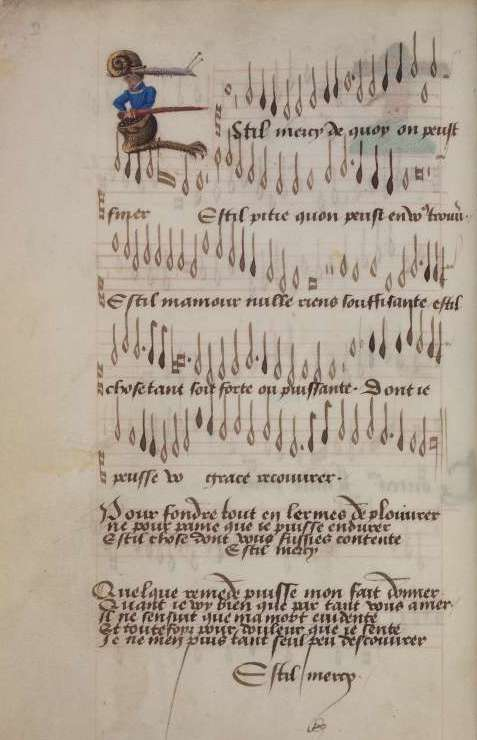 Stil mercy de quoy on peust
finer Estil pitie quon peust en vo9 trouver.
Estil mamour nulle riens souffisante estil
chose tant soit forte ou puissante. Dont ie
peusse vo grace recouvrer.
Pour fondre tout en lermes de plourer
ne pour paine que ie puisse endurer
Estil chose dont vous fussies contente
Estil mercy
Quelque remede puisse mon fait donner
Quant ie voy bien que par tant vous amer
Il ne sensuit que ma mort evidente
Et toutesfois pour douleur que ie sente
Je ne men puis tant seul peu descouvrer
Estil mercy